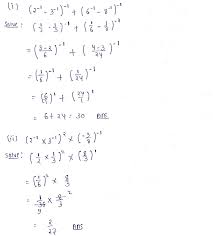 (i) (2⁻¹ - 3⁻¹)⁻¹ + (6⁻¹ - 8⁻¹)⁻¹
Solu: (1/2 - 1/3)⁻¹ + (1/6 - 1/8)⁻¹
= (3-2/6)⁻¹ + (4-3/24)⁻¹
= (1/6)⁻¹ + (1/24)⁻¹
= (6/1)¹ + (24/1)¹
= 6 + 24 = 30 ans
(ii) (2⁻¹ × 3⁻¹)² × (-3/8)⁻¹
Solu: (1/2 × 1/3)² × (8/3)¹
= (1/6)² × 8/3
= 1/36 × 8/3
9 2
= 2/27 ans